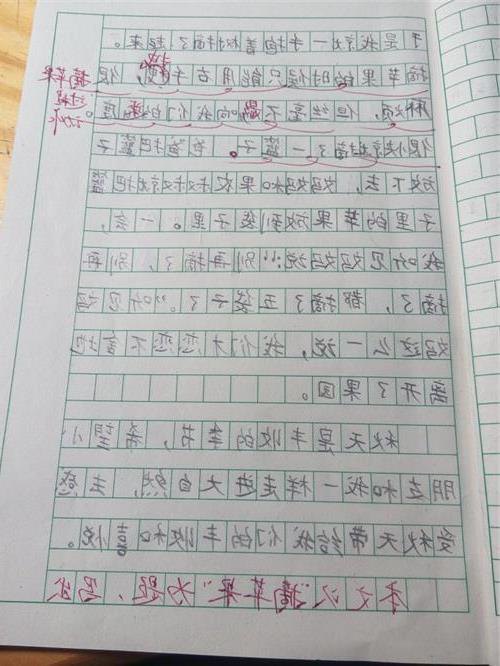 于是我就一手抱着树摘了起来。
摘苹果的时候只能用右手，很
摘苹果
麻烦，但丝毫不影响我们的速度。
过程
很快就摘了一篮子。爸爸把篮子
放下去，妈妈和果农叔叔就把篮
子里的苹果放到袋子里。一会，
我听见妈妈说：“别再摘了，别再
摘了，都摘了五袋子了。”听见妈
妈这么一说，我们才恋恋不舍地
离开了果园。
秋天是丰收的季节，希望小
朋友和我一样走进大自然，去感
受秋天带给我们的丰收和喜悦。
本文以“摘苹果”为题，